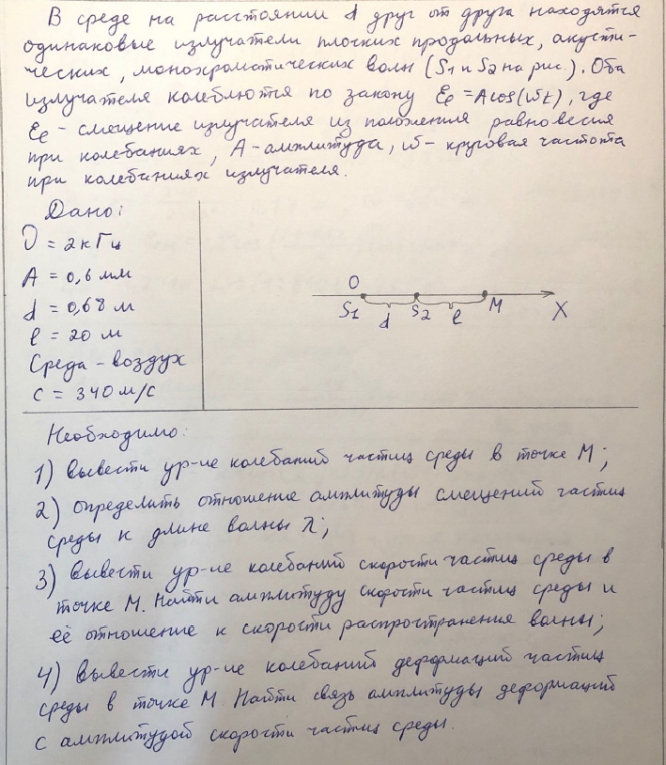 В среде на расстоянии d друг от друга находятся
одинаковые излучатели плоских продольных, акусти-
ческих, монохроматических волн (S1 и S2 на рис.). Оба
излучателя колеблются по закону Ee = A cos(ωt), где
Ee - смещение излучателя из положения равновесия
при колебаниях, A - амплитуда, ω - круговая частота
при колебаниях излучателя.
Дано:
ν = 2 кГц
A = 0,6 мм
d = 0,68 м
l = 20 м
Среда - воздух
c = 340 м/с
O
S1 d S2 l M X
Необходимо:
1) вывести ур-ие колебаний частиц среды в точке M;
2) определить отношение амплитуды смещений частиц
среды к длине волны λ;
3) вывести ур-ие колебаний скорости частиц среды в
точке M. Найти амплитуду скорости частиц среды и
её отношение к скорости распространения волны;
4) вывести ур-ие колебаний деформаций частиц
среды в точке M. Найти связь амплитуды деформаций
с амплитудой скорости частиц среды.